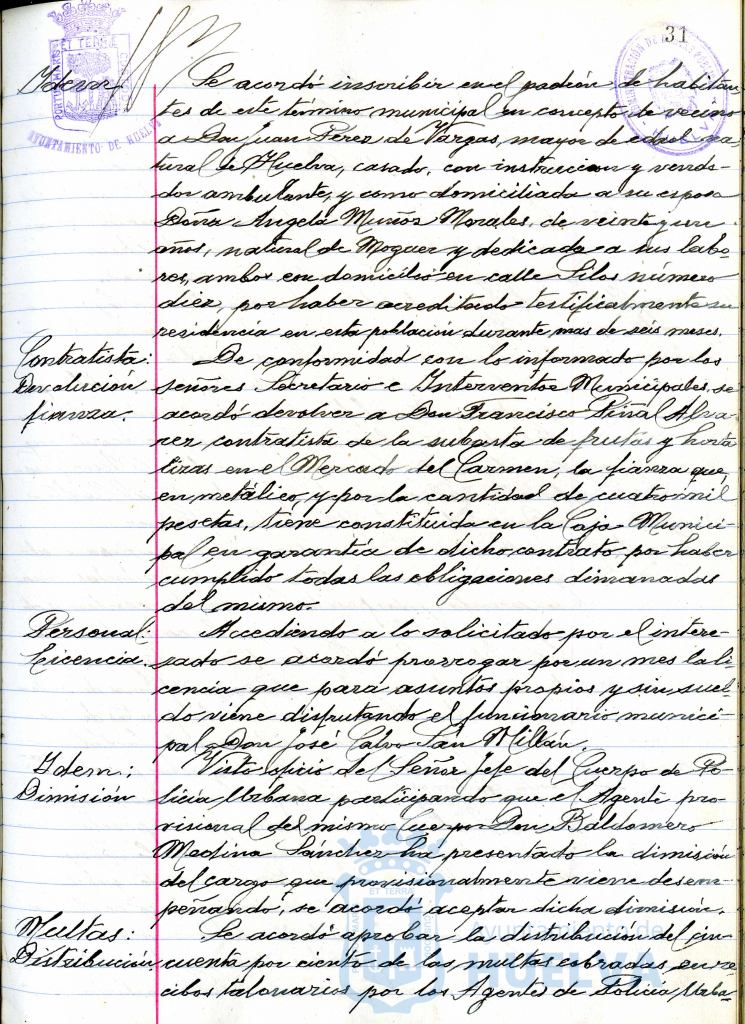 31
AYUNTAMIENTO DE HUELVA
Idem
Se acordó inscribir en el padrón de habitan-
tes de este término municipal en concepto de vecino
a Don Juan Pérez de Vargas, mayor de edad, na-
tural de Huelva, casado, con instrucción y vende-
dor ambulante, y como domiciliada a su esposa
Doña Angela Muñoz Morales, de veinte y un
años, natural de Moguer y dedicada a sus labo-
res, ambos con domicilio en calle Silos número
diez, por haber acreditado testificalmente su
residencia en esta población durante mas de seis meses.
Contratista:
Devolución
fianza.
De conformidad con lo informado por los
señores Secretario e Interventor Municipales, se
acordó devolver a Don Francisco Piñal Alva-
rez, contratista de la subasta de frutas y horta-
lizas en el Mercado del Carmen, la fianza que,
en metálico, y por la cantidad de cuatro mil
pesetas, tiene constituida en la Caja Munici-
pal en garantía de dicho contrato, por haber
cumplido todas las obligaciones dimanadas
del mismo.
Personal:
Licencia.
Accediendo a lo solicitado por el intere-
sado se acordó prorrogar por un mes la li-
cencia que para asuntos propios y sin suel-
do viene disfrutando el funcionario munici-
pal Don José Calvo San Millán.
Idem:
Dimisión
Visto oficio del Señor Jefe del Cuerpo de Po-
licía Urbana participando que el Agente pro-
visional del mismo Cuerpo Don Baldomero
Medina Sánchez ha presentado la dimisión
del cargo que provisionalmente viene desem-
peñando, se acordó aceptar dicha dimisión.
Multas:
Distribución
Se acordó aprobar la distribución del cin-
cuenta por ciento de las multas cobradas en re-
cibos talonarios por los Agentes de Policía Urba-
Ayuntamiento de
HUELVA